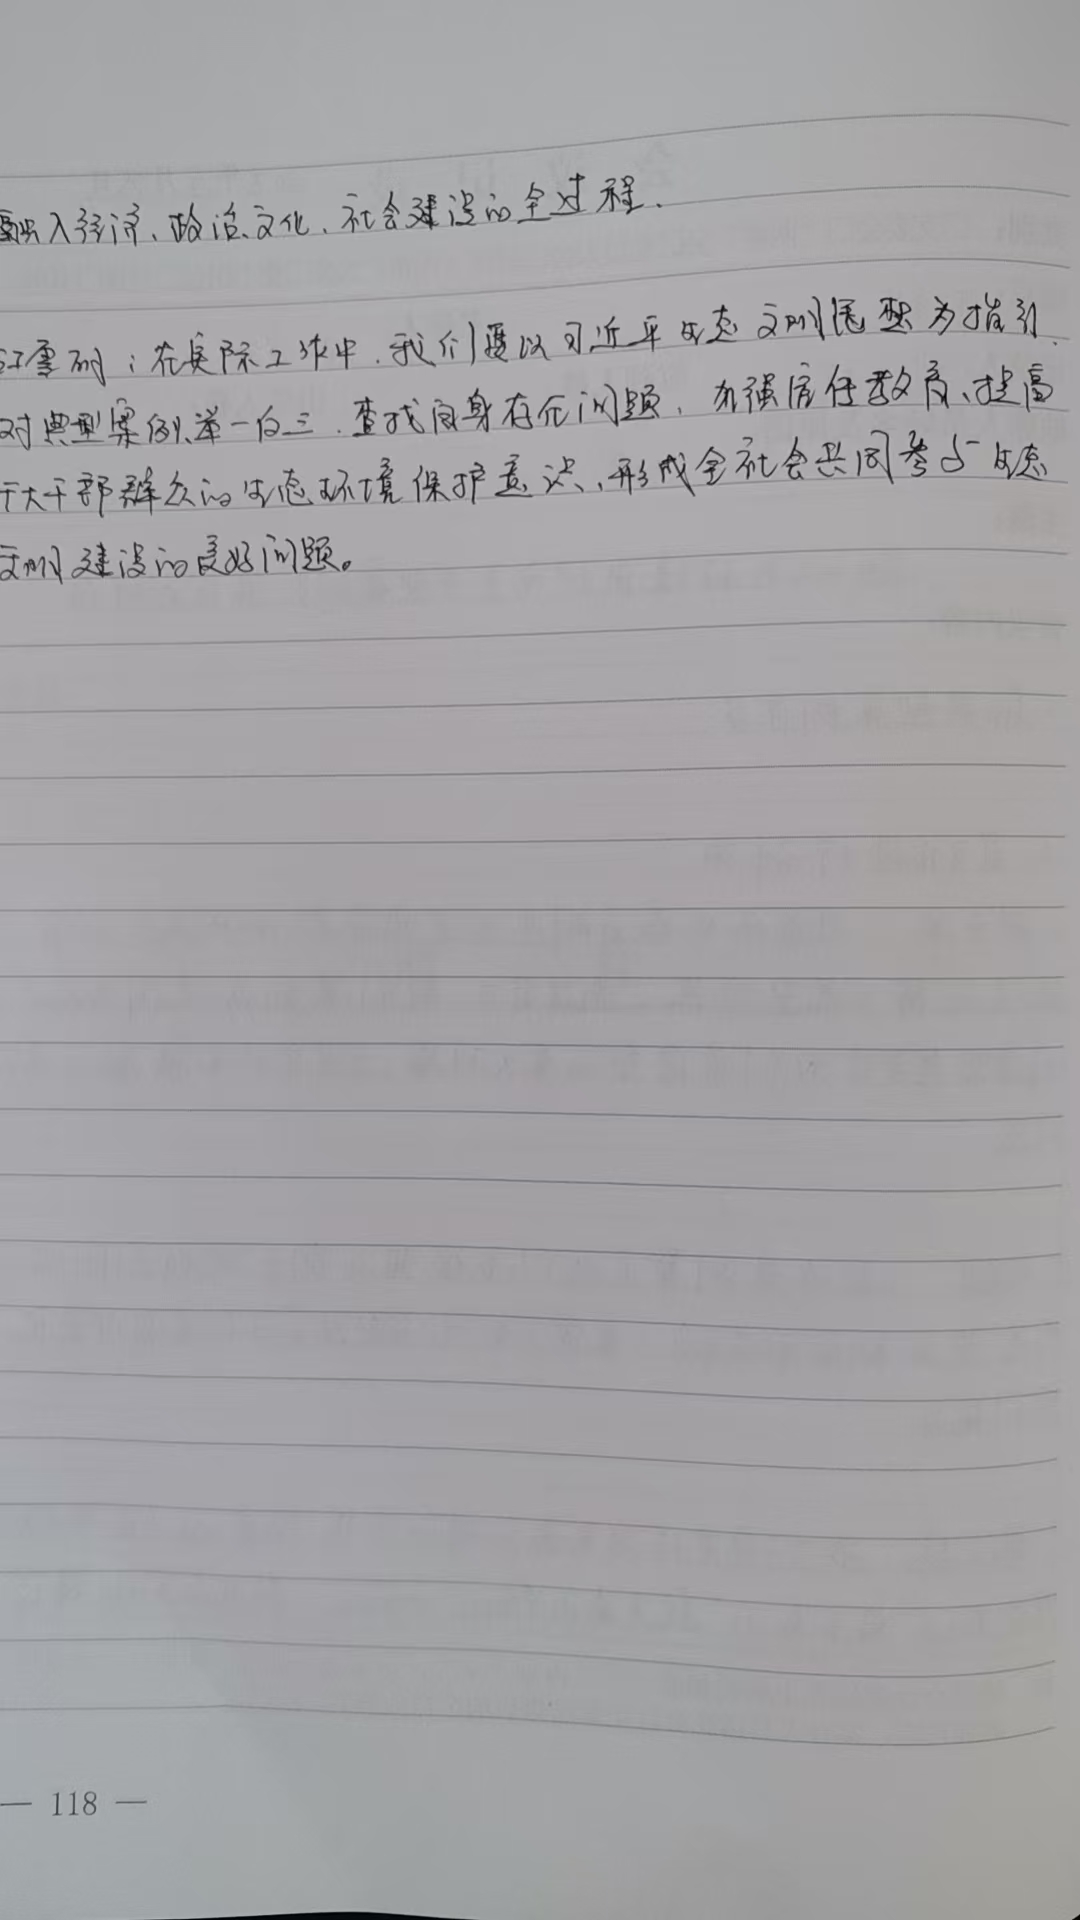 融入经济、政治、文化、社会建设的全过程.
雪：在实际工作中，我们要以习近平生态文明思想为指引.
对典型案例举一反三，查找自身存在问题，加强宣传教育、提高
广大干部群众的生态环境保护意识，形成全社会共同参与生态
文明建设的良好问题。
— 118 —